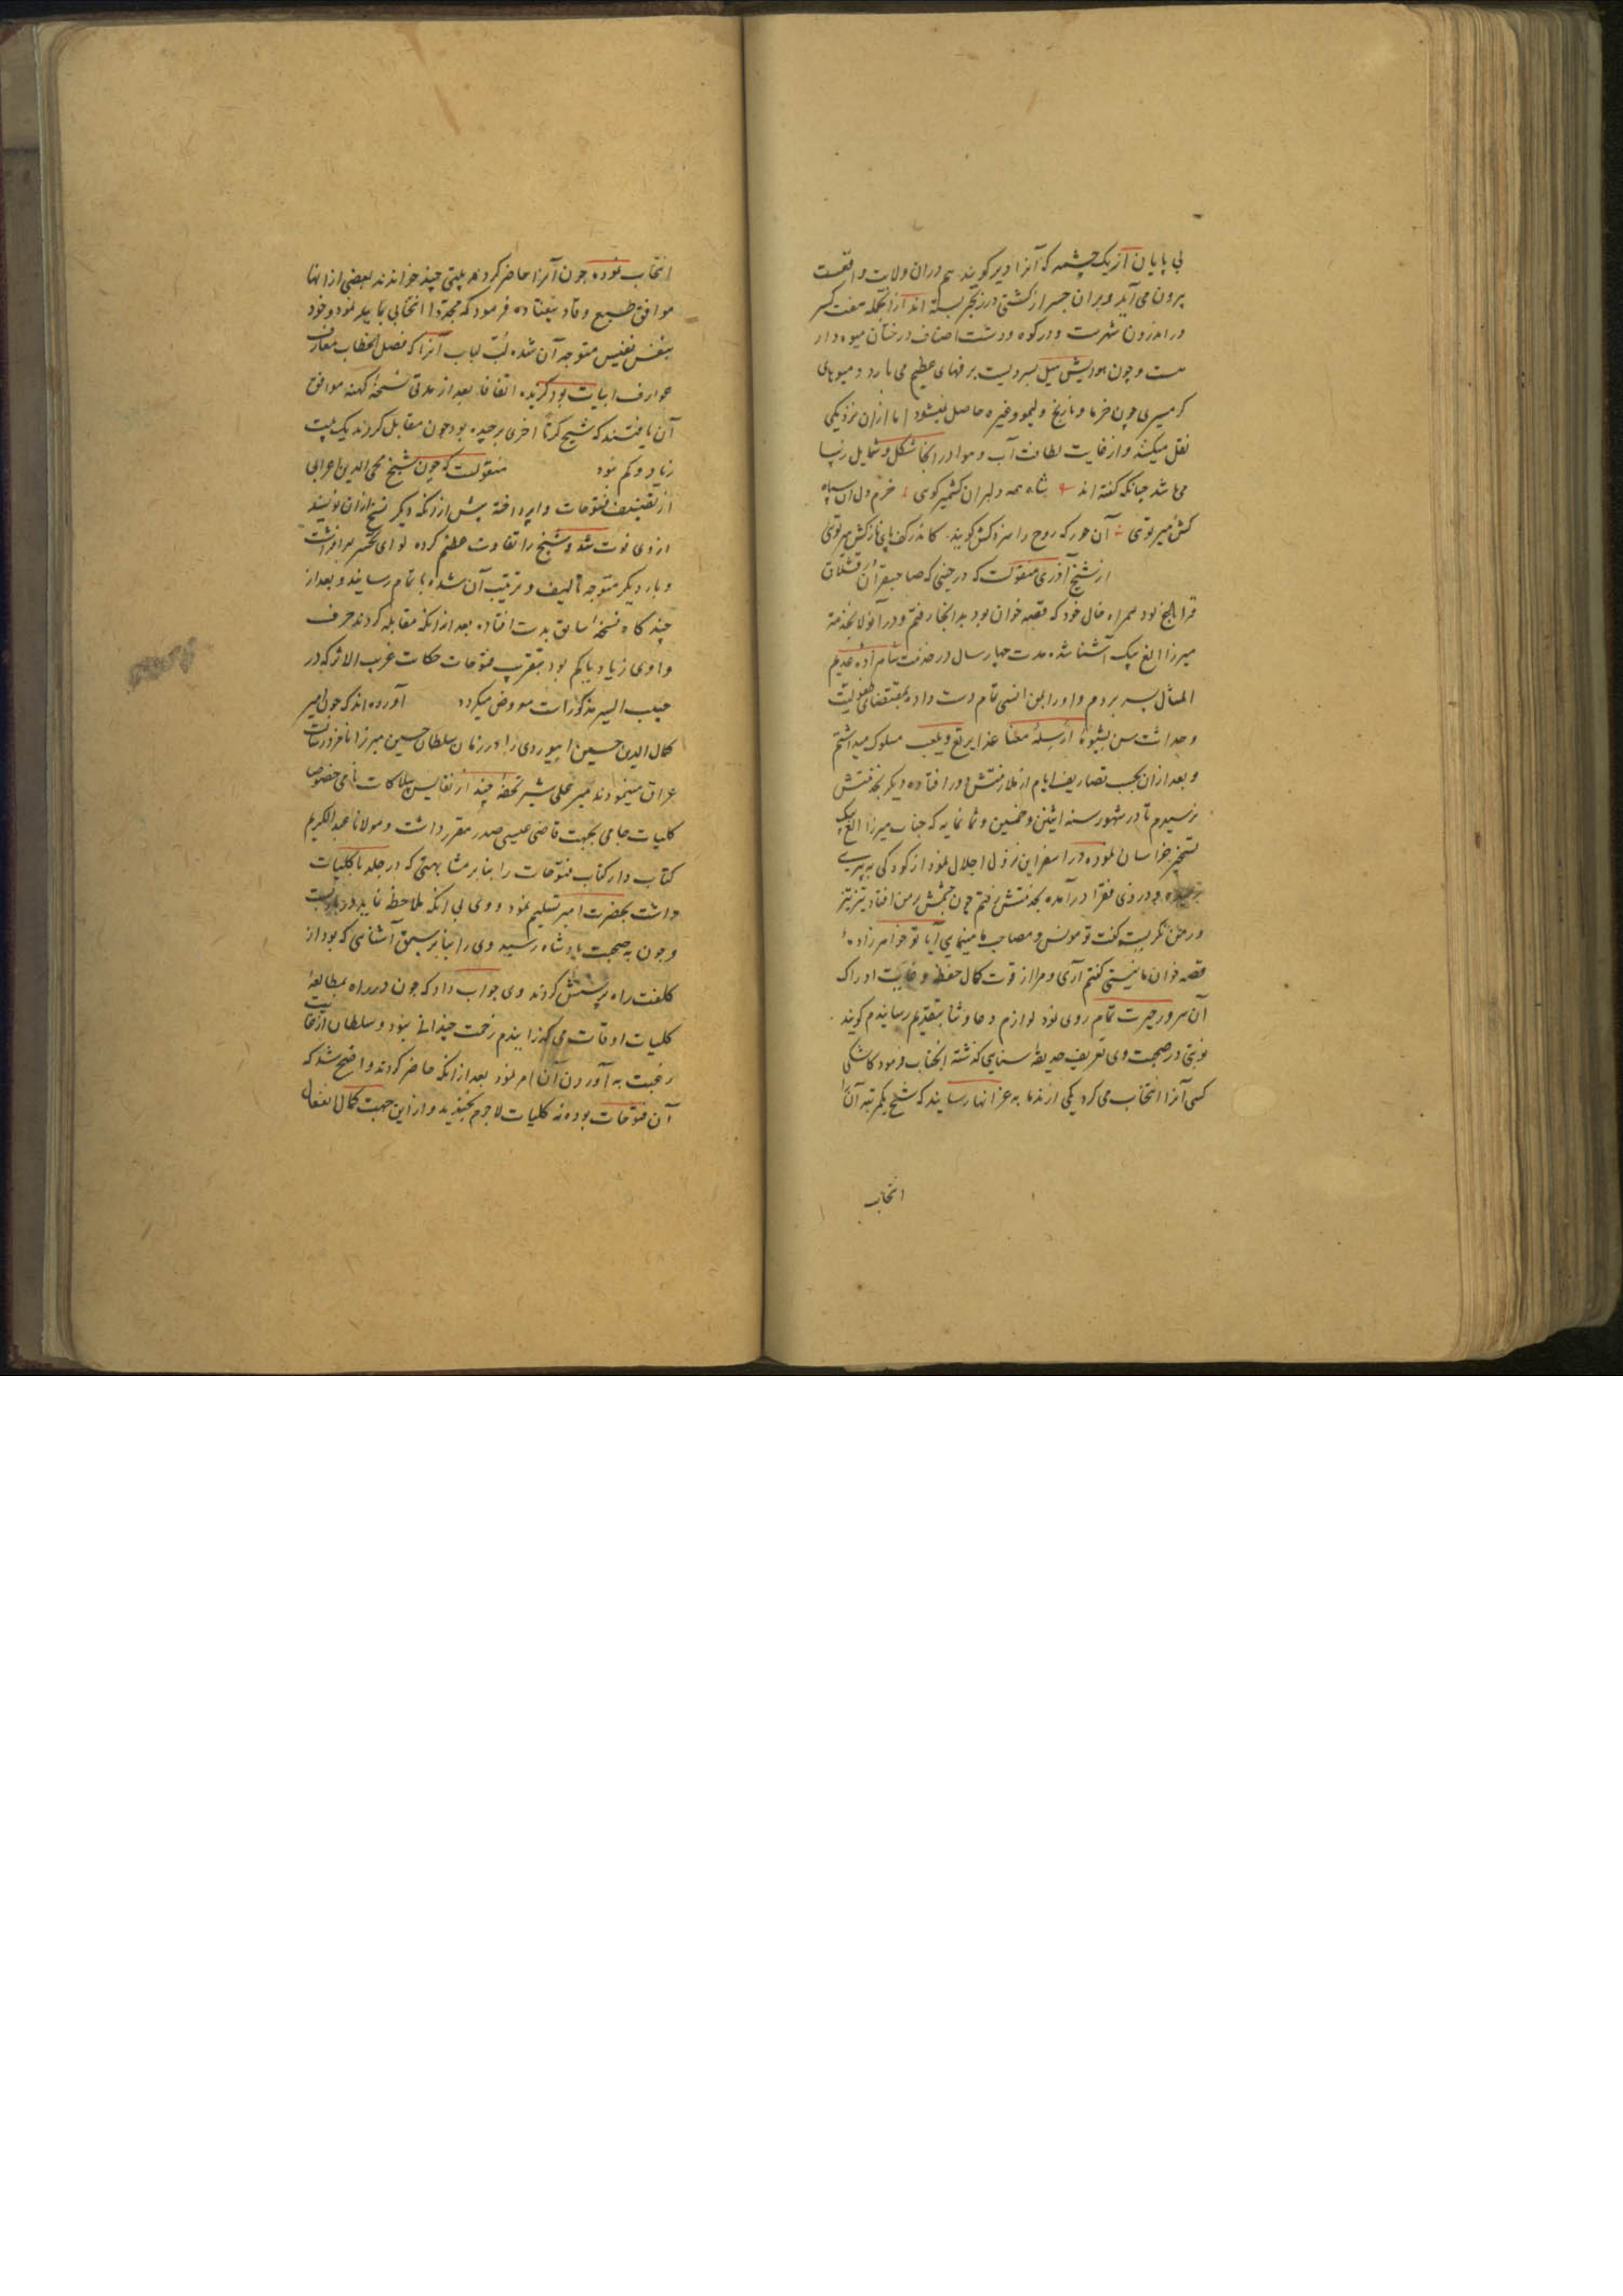 بی پایان از یک چشمه که آنرا دیر کویند هم دران ولایت واقعست
برون می آید و بران جسر از کشتی در زنجیر بسته اند ازانجمله هفت جسر
در اندرون شهرست و در کوه و دشت اصناف درختان میوه دار
هست و چون هوایش میل بسردیست برفهای عظیم می بارد و میوهای
کرمسیری چون خرما و نارنج و لیمو و غیره حاصل نمیشود اما ازان نزدیکی
نقل میکنند و از غایت لطافت آب و هوا در انجا شکل و شمایل زیبا
می باشد چنانکه کفته اند شاه همه دلبران کشمیر کوی خرم دل ان سپاه
کش میر توی آن حور که روح را سزد کش کویند کاندر کف پای نازکش میر توی
از شیخ آذری منقولست که در حینی که صاحبقران در قشلاق
قراباغ بود همراه خال خود که قصه خوان بود بدانجا رفتم و در آنولا بخدمت
میرزا الغ بیک آشنا شده مدت چهار سال در خدمت شاهزاده عدیم
المثال بسر بردم و او را بمن انسی تمام دست داده بمقتضای طفولیت
و حداثت سن بشیوه ارسله معنا غدا یرتع و یلعب سلوک میداشتم
و بعد ازان بحسب تصاریف ایام از ملازمتش دور افتاده دیکر بخدمتش
نرسیدم تا در شهور سنه اثنین و خمسین و ثمانمایه که جناب میرزا الغ بیک
تسخیر خراسان نموده در اسفراین نزول اجلال نمود از کودکی به پیری
رسیده و در زی فقرا درآمده بخدمتش رفتم چون چشمش بر من افتاد تیز تیز
در من نکریست کفت تو مونس و مصاحب ما مینمایی آیا تو خواهرزاده
قصه خوان ما نیستی کفتم آری و مرا از قوت کمال حفظ و غایت ادراک
آن سرور حیرت تمام روی نمود لوازم دعا و ثنا بتقدیم رسانیدم کویند
نوبتی در صحبت وی تعریف حدیقه سنایی کذشته انجناب فرمود کاشکی
کسی آنرا انتخاب می کرد یکی از ندما به عز انها رسانید که شیخ یکمرتبه آنرا
انتخاب
انتخاب نموده چون آنرا حاضر کردند بیتی چند خواندند بعضی از انها
موافق طبع وقاد نیفتاده فرمود که مجددا انتخابی نماید نمود و خود
بنفس نفیس متوجه آن شده لب لباب آنرا که فصل الخطاب معارف
عوارف ابیات بود کزیده اتفاقا بعد از مدتی نسخه کهنه موافق
آن یافتند که شیخ کرة اخری برچیده بود چون مقابل کردند یک بیت
زیاد و کم نبود منقولست که چون شیخ محی الدین اعرابی
از تصنیف فتوحات واپرداخته پیش از انکه دیکر نسخ ازان نویسند
ازوی فوت شد و شیخ را تفاوت عظیم کرده لوای تحسر برافراشت
و بار دیکر متوجه تالیف و ترتیب آن شده باتمام رسانید و بعد از
چند کاه نسخه سابق بدست افتاده بعد ازانکه مقابله کردند حرف
واوی زیاد یا کم بود بتقریب فتوحات حکایت غریب الاثر که در
حبیب السیر مذکورات معروض میکردد آورده اند که چون امیر
کمال الدین حسین ابیوردی را در زمان سلطان حسین میرزا نامزد رسالت
عراق مینمودند میر علی شیر تحفه چند از نفایس تملکات نامی خصوصا
کلیات جامی بجهت قاضی عیسی صدر مقرر داشت و مولانا عبدالکریم
کتاب دار کتاب فتوحات را بنابر مشابهتی که در جلد با کلیات
داشت بحضرت امیر تسلیم نمود و وی بی انکه ملاحظه نماید
و چون به صحبت پادشاه رسید وی را بنابر سبق آشنایی که بود از
کلفت راه پرسش کردند وی جواب داد که چون در راه بمطالعه
کلیات اوقات می کذرانیدم زحمت چندانی نبود و سلطان از غایت
رغبت به آوردن آن امر نمود بعد ازانکه حاضر کردند واضح شد که
آن فتوحات بوده نه کلیات لاجرم بخندید و از این جهت کمال انفعال